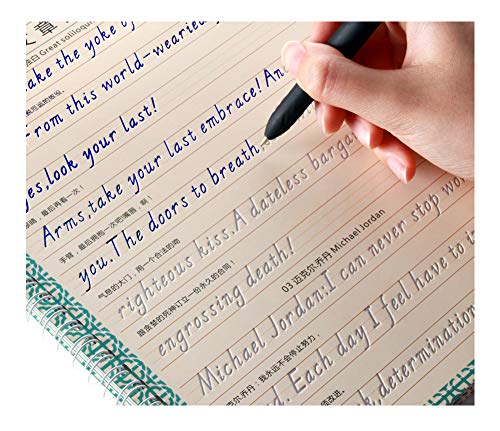 章
独白 Great soliloqu
ake the yoke of
厄运的奴役。
From this world-wearied
yes, look your last!
眼睛，最后再看一次！
Arms, take your last embrace! An
手臂，最后拥抱一次吧嘴唇，啊！
you. The doors to breath,
气息的大门，用一个合法的吻
righteous kiss. A dateless barga
跟贪婪的死神订立一份永久的合同！
engrossing death!
03 迈克尔乔丹 Michael Jordan
Michael Jordan: I can never stop wo
克尔乔丹：我永远不会停止努力，
d. Each day I feel have to i
须改进。
k, determination